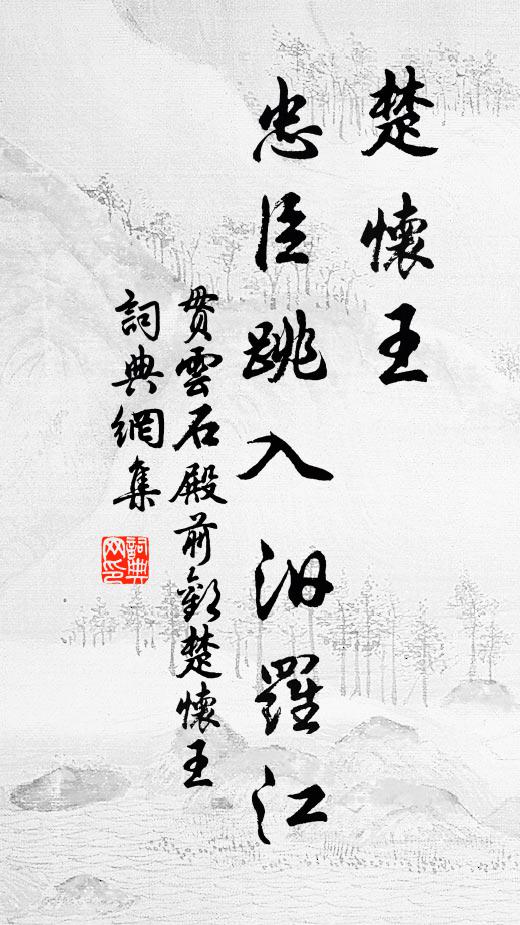 楚懷王
忠臣跳入汨羅江
貫雲石殿前歡楚懷王
詞典網集
詞典网印